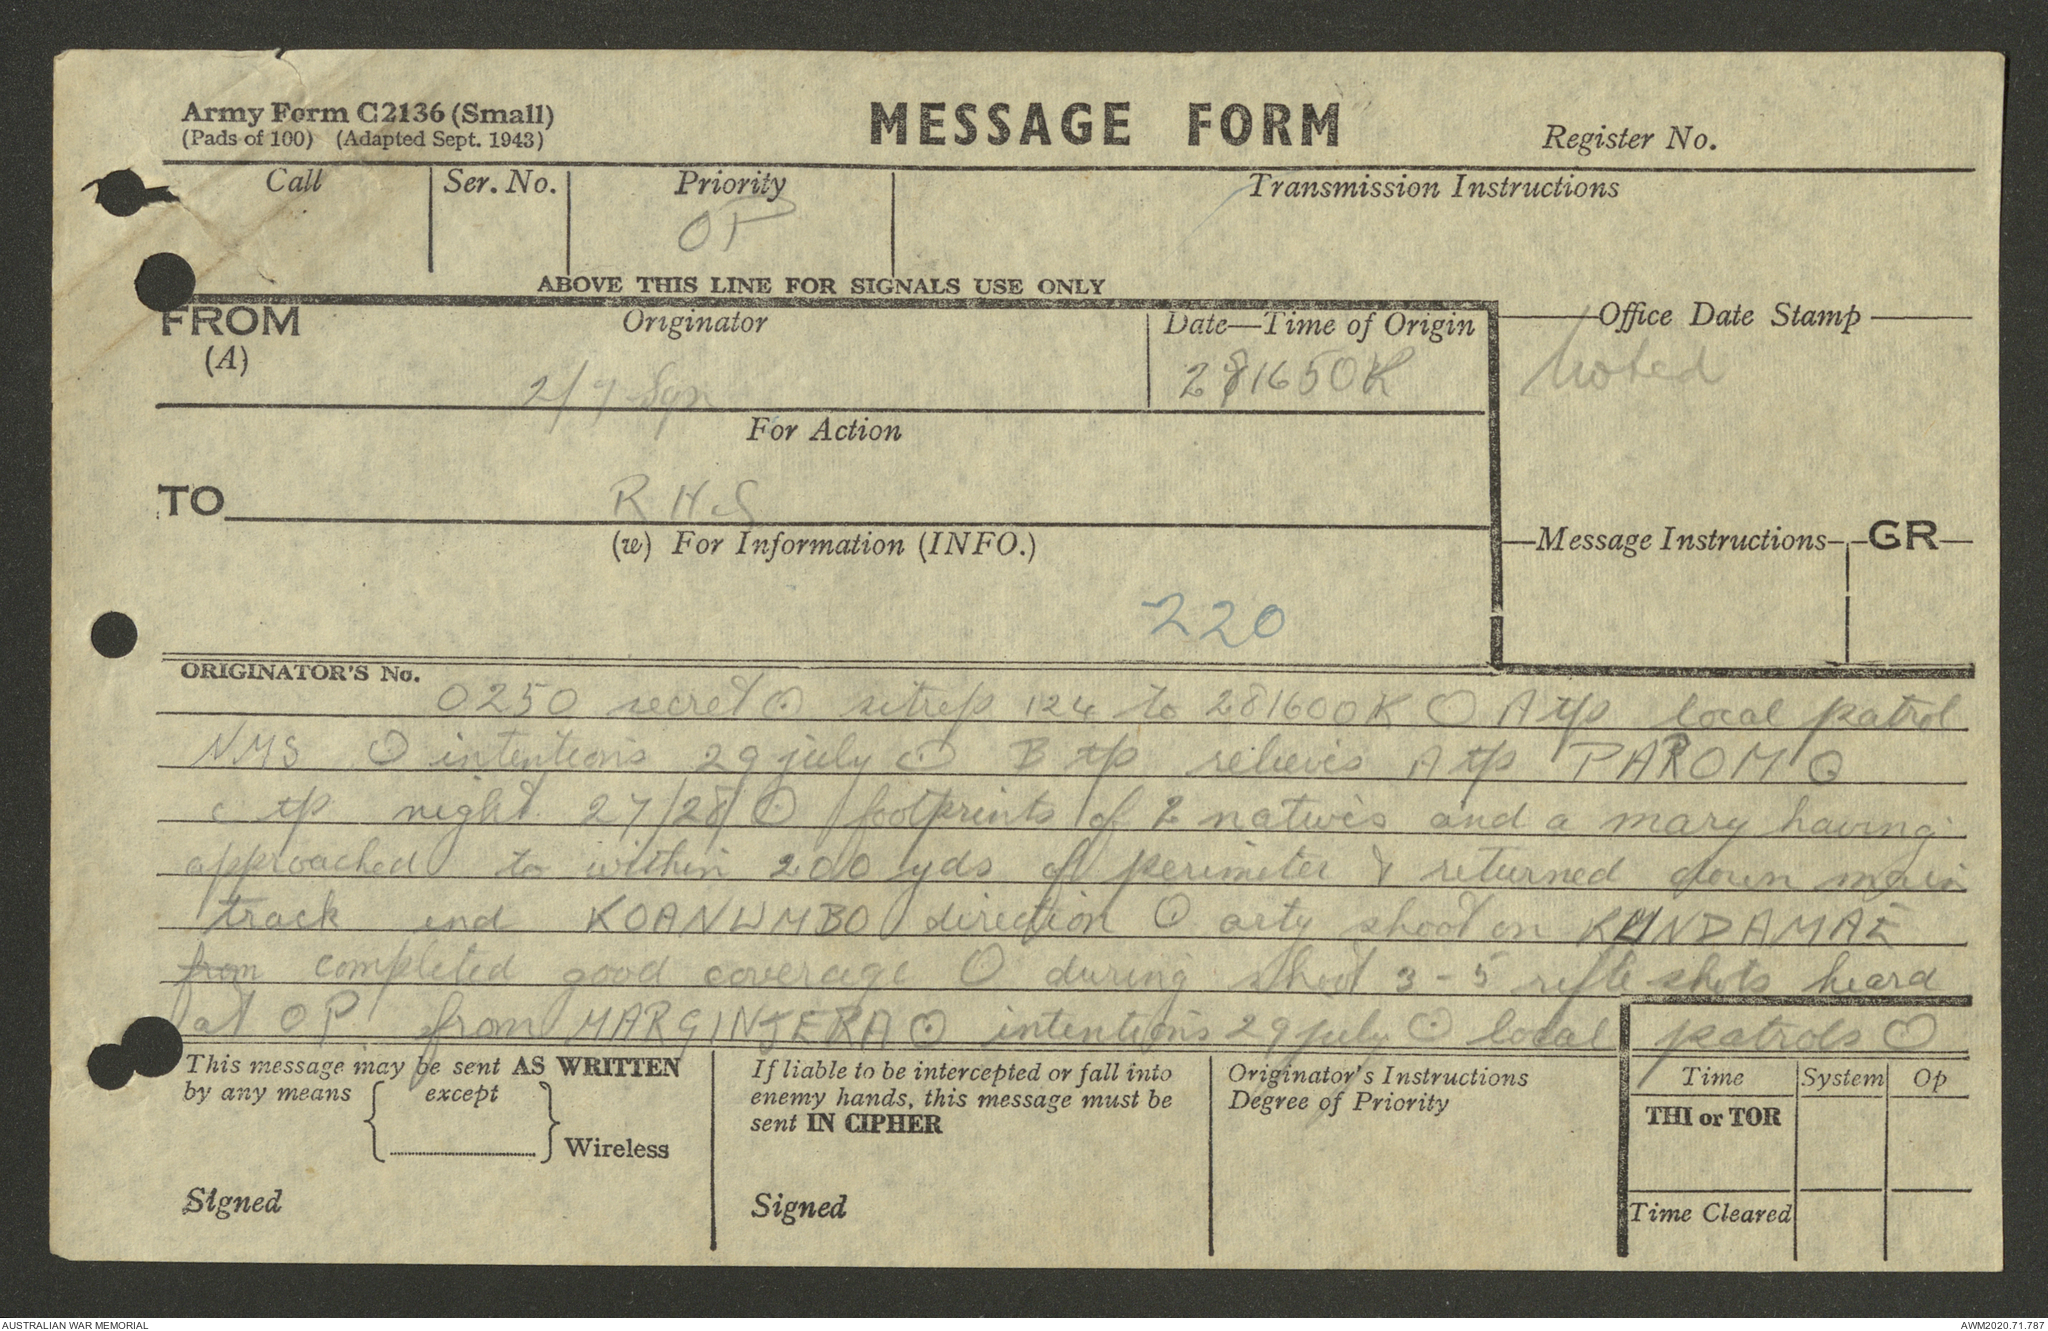 Army Form C2136 (Small)
(Pads of 100) (Adapted Sept. 1943)
MESSAGE FORM
Register No.
Call
Ser. No.
Priority
OP
Transmission Instructions
ABOVE THIS LINE FOR SIGNALS USE ONLY
FROM
(A)
Originator
2/9 Sqn
Date—Time of Origin
281650K
Office Date Stamp
Noted
For Action
TO
R H Q
(w) For Information (INFO.)
Message Instructions
GR
220
ORIGINATOR'S No.
0250 secret ⊙ sitrep 124 to 281600K ⊙ A tp local patrol
NMS ⊙ intentions 29 july ⊙ B tp relieves A tp PAROM ⊙
c tp night 27/28 ⊙ footprints of 2 natives and a mary having
approached to within 200 yds of perimeter & returned down main
track ind KOANUMBO direction ⊙ arty shoot on KUNDAMAE
from completed good coverage ⊙ during shoot 3-5 rifle shots heard
at OP from MARGINJERA ⊙ intentions 29 july ⊙ local patrols ⊙
This message may be sent AS WRITTEN
by any means
except
Wireless
Signed
If liable to be intercepted or fall into
enemy hands, this message must be
sent IN CIPHER
Signed
Originator's Instructions
Degree of Priority
Time
System
Op
THI or TOR
Time Cleared
AUSTRALIAN WAR MEMORIAL
AWM2020.71.787